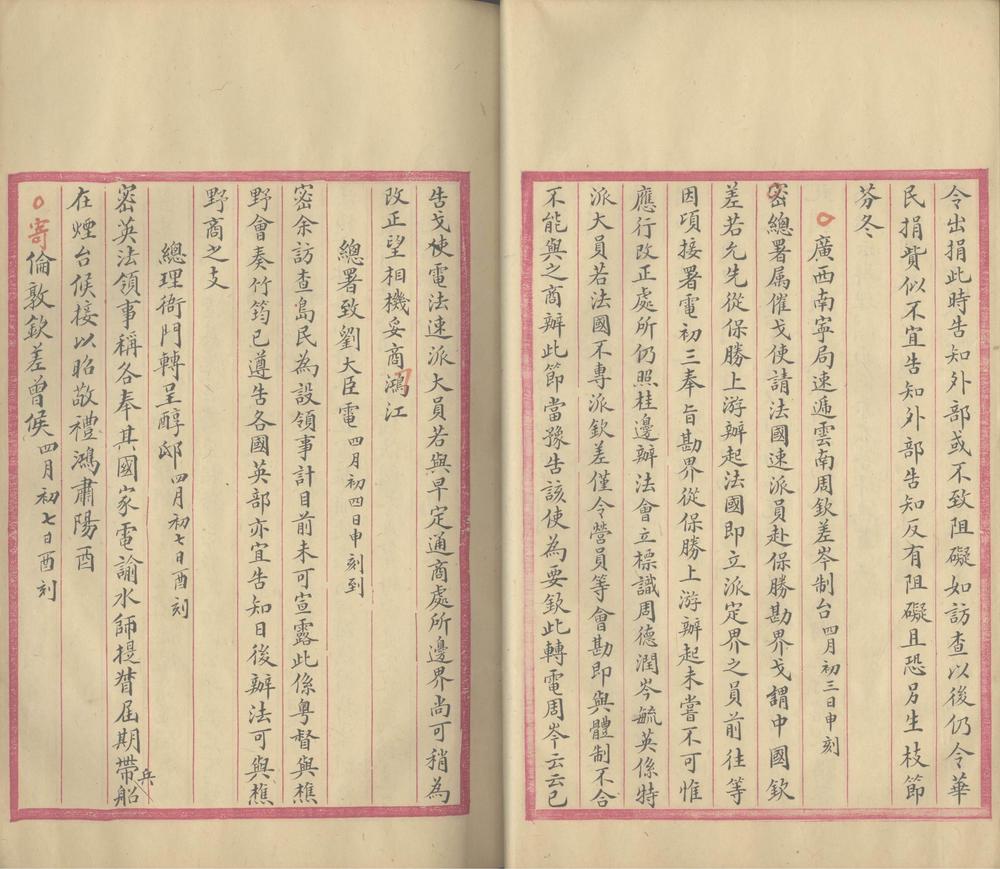 令出捐此時告知外部或不致阻礙如訪查以後仍令華
民捐貲似不宜告知外部告知反有阻礙且恐另生枝節
芬冬
廣西南寧局速遞雲南周欽差岑制台四月初三日申刻
密總署属催戈使請法國速派員赴保勝勘界戈謂中國欽
差若允先從保勝上游辦起法國即立派定界之員前往等
因頃接署電初三奉旨勘界從保勝上游辦起未嘗不可惟
應行改正處所仍照桂邊辦法會立標識周德潤岑毓英係特
派大員若法國不專派欽差僅令營員等會勘即與體制不合
不能與之商辦此節當豫告該使為要欽此轉電周岑云云已
告戈使電法速派大員若與早定通商處所邊界尚可稍為
改正望相機妥商鴻江
總署致劉大臣電四月初四日申刻到
密余訪查島民為設領事計目前未可宣露此係粵督與樵
野會奏竹筠已遵告各國英部亦宜告知日後辦法可與樵
野商之支
總理衙門轉呈醇邸四月初七日酉刻
密英法領事稱各奉其國家電諭水師提督屆期帶兵船
在煙台候接以昭敬禮鴻肅陽酉
寄倫敦欽差曾侯四月初七日酉刻